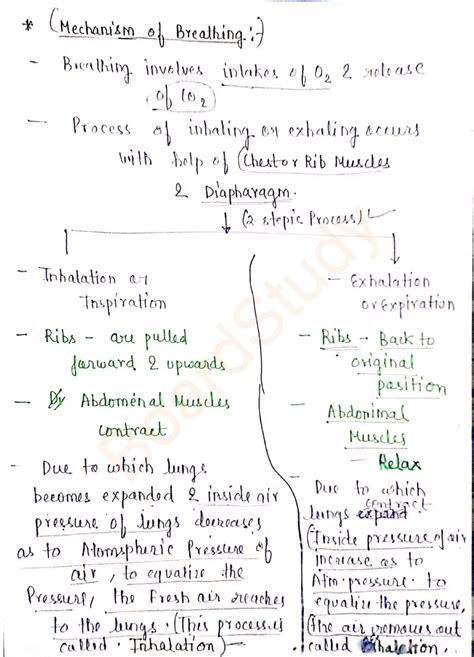 * (Mechanism of Breathing :-)
- Breathing involves intakes of O2 & release
of CO2
- Process of inhaling or exhaling occurs
with help of (Chest or Rib Muscles
& Diapharagm.
↓ (2 stepic Process)
- Inhalation or
Inspiration
- Ribs - are pulled
forward & upwards
- Abdomenal Muscles
contract
- Due to which lungs
becomes expanded & inside air
pressure of lungs decreases
as to Atomspheric Pressure of
air, to equatize the
Pressure, the Fresh air reaches
to the lungs. (This process is
called. Inhalation)
- Exhalation
or Expiration
- Ribs - Back to
original
position
- Abdonimal
Muscles
- Relax
- Due to which
contract
lungs expand
(Inside pressure of air
increase as to
Atm. pressure. to
equatize the pressure,
the air removes out
called Exhalation.
BoardStudy